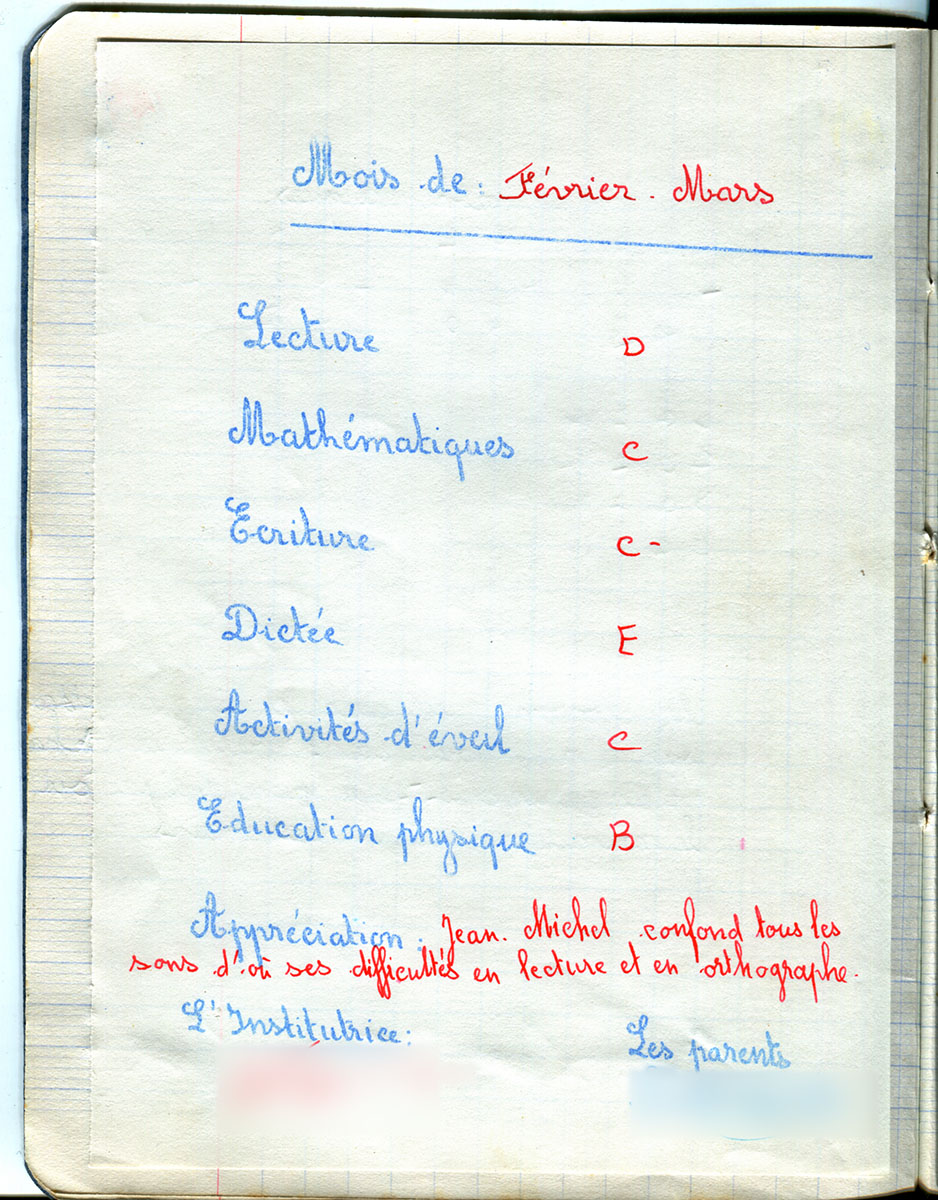 Mois de : Février . Mars
Lecture D
Mathématiques C
Ecriture C -
Dictée E
Activités d'éveil C
Education physique B
Appréciation : Jean . Michel confond tous les
sons d'où ses difficultés en lecture et en orthographe.
L'Institutrice : Les parents